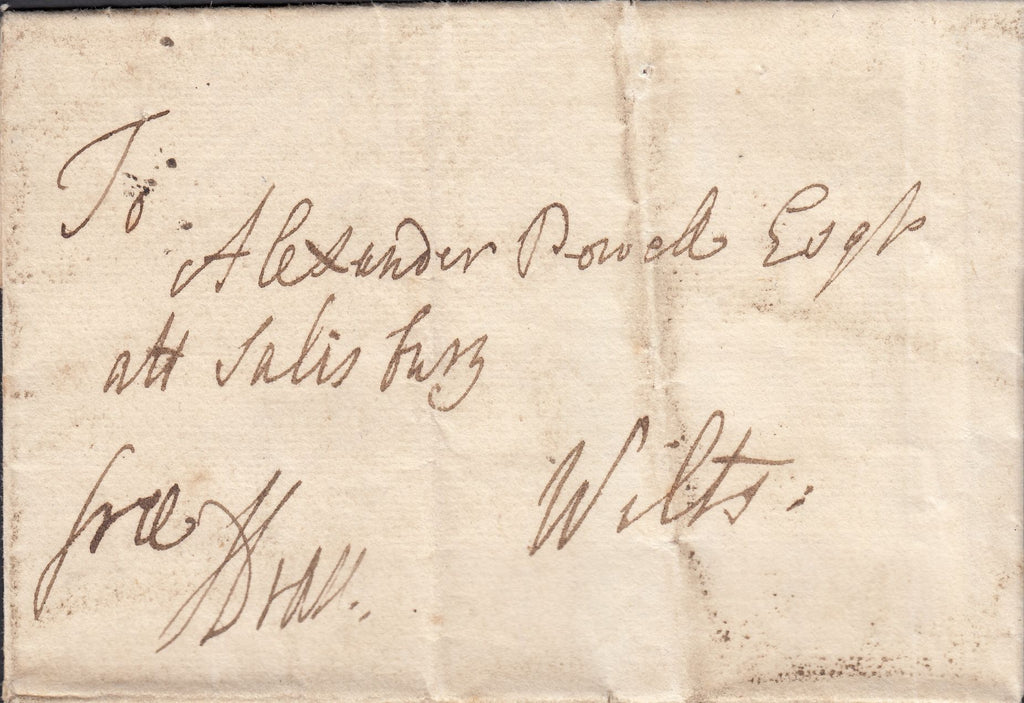 To
Alexander Powell Esqr
att Salisbury
Wilts.
free